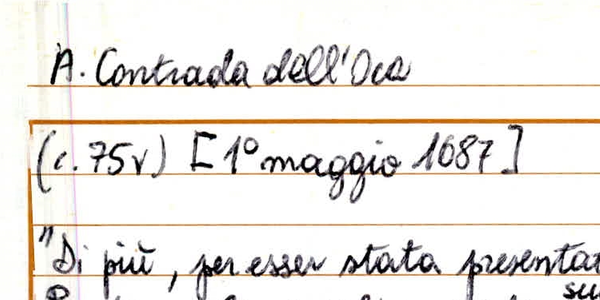 A. Contrada dell'Oca
(c. 75v) [1° maggio 1687]
"Di più, per esser stata presentat
su